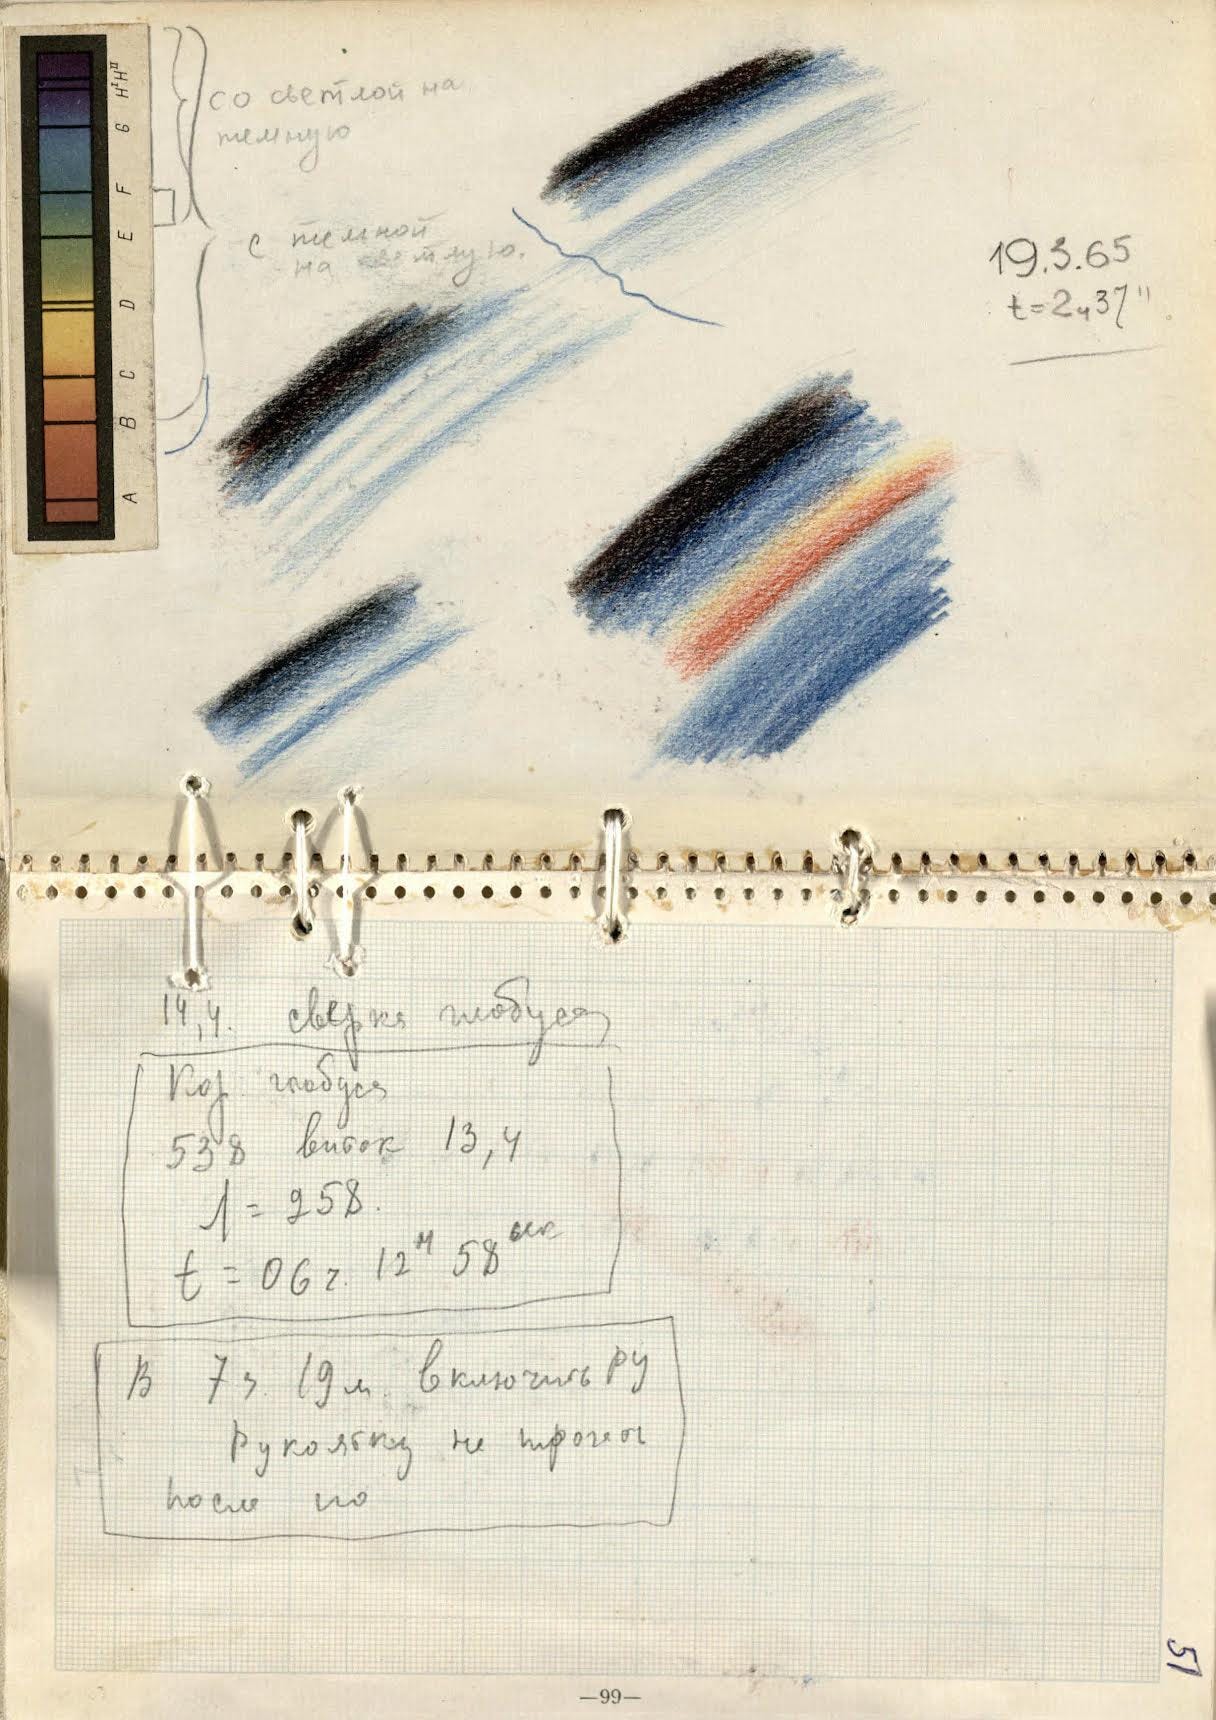 H^I H^II
G
F
E
D
C
B
A
со светлой на
темную
с темной
на светлую.
19.3.65
t=2ч37"
14,4. сверка глобуса
Кор. глобуса
538 виток 13,4
Λ = 258.
t = 06 г. 12м 58сек
В 7 ч. 19 м. включить РУ
Рукоятку не трогать
после
51
—99—